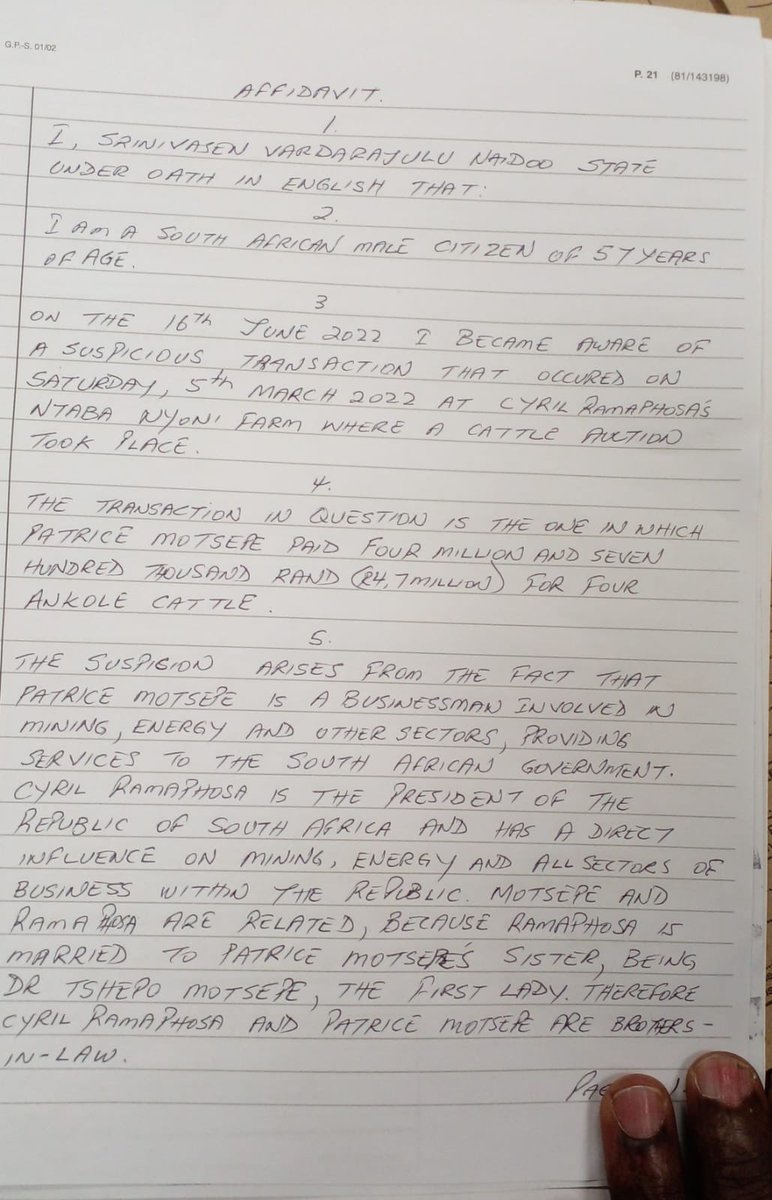 G.P.-S. 01/02
P. 21 (81/143198)
AFFIDAVIT.
1.
I, SRINIVASEN VARDARAJULU NAIDOO STATE
UNDER OATH IN ENGLISH THAT:
2.
I AM A SOUTH AFRICAN MALE CITIZEN OF 57 YEARS
OF AGE.
3
ON THE 16th JUNE 2022 I BECAME AWARE OF
A SUSPICIOUS TRANSACTION THAT OCCURED ON
SATURDAY, 5th MARCH 2022 AT CYRIL RAMAPHOSA'S
NTABA NYONI FARM WHERE A CATTLE AUCTION
TOOK PLACE.
4.
THE TRANSACTION IN QUESTION IS THE ONE IN WHICH
PATRICE MOTSEPE PAID FOUR MILLION AND SEVEN
HUNDRED THOUSAND RAND (R4,7 MILLION) FOR FOUR
ANKOLE CATTLE.
5.
THE SUSPICION ARISES FROM THE FACT THAT
PATRICE MOTSEPE IS A BUSINESSMAN INVOLVED IN
MINING, ENERGY AND OTHER SECTORS, PROVIDING
SERVICES TO THE SOUTH AFRICAN GOVERNMENT.
CYRIL RAMAPHOSA IS THE PRESIDENT OF THE
REPUBLIC OF SOUTH AFRICA AND HAS A DIRECT
INFLUENCE ON MINING, ENERGY AND ALL SECTORS OF
BUSINESS WITHIN THE REPUBLIC. MOTSEPE AND
RAMAPHOSA ARE RELATED, BECAUSE RAMAPHOSA IS
MARRIED TO PATRICE MOTSEPE'S SISTER, BEING
DR TSHEPO MOTSEPE, THE FIRST LADY. THEREFORE
CYRIL RAMAPHOSA AND PATRICE MOTSEPE ARE BROTHERS-
IN-LAW.